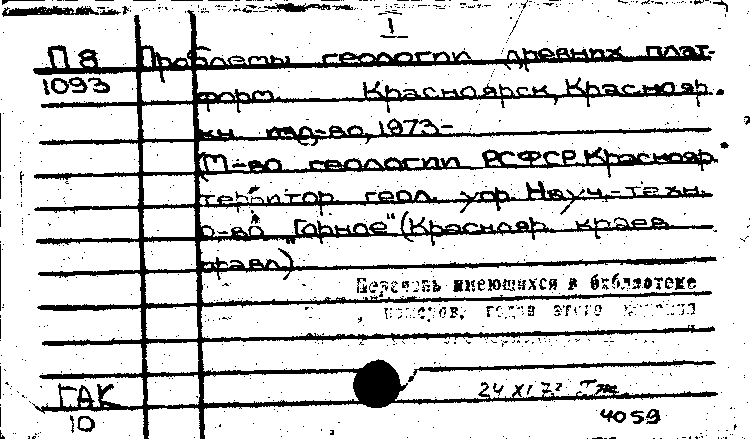 I
П 8 Проблемы геологии древних плат-
1093 форм. Красноярск, Краснояр.
кн. изд-во, 1973-
(М-во геологии РСФСР. Краснояр.
территор. геол. упр. Науч.-техн.
о-во "Горное" (Краснояр. краев.
правл.)
Перечень имеющихся в библиотеке
, номеров, годов этого издания
ГАК 24 XI 73
10 4059